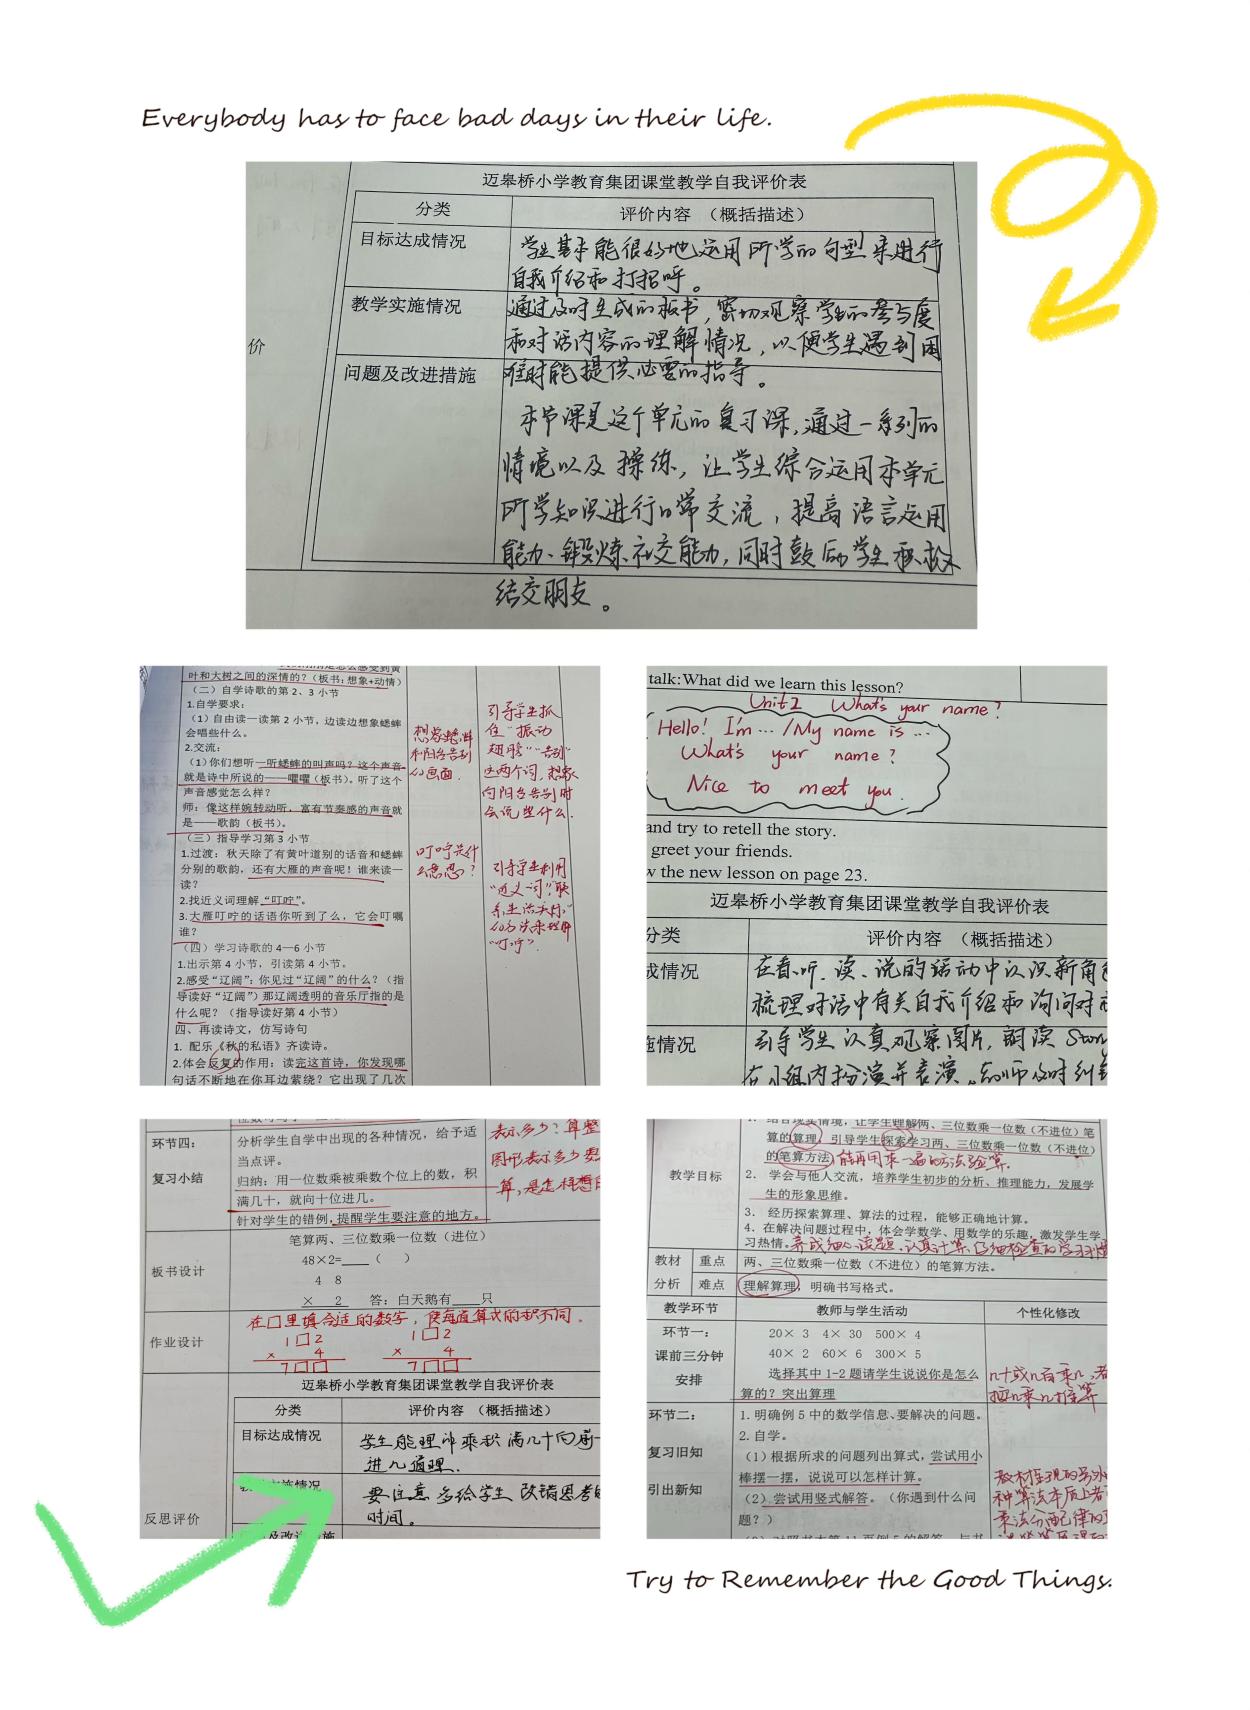 Everybody has to face bad days in their life.
迈皋桥小学教育集团课堂教学自我评价表
分类
评价内容 （概括描述）
目标达成情况
学生基本能很好地运用所学的句型来进行
自我介绍和打招呼。
教学实施情况
通过及时生成的板书，密切观察学生的参与度
和对话内容的理解情况，以便学生遇到困
难时能提供必要的指导。
价
问题及改进措施
本节课是这个单元的复习课，通过一系列的
情境以及操练，让学生综合运用本单元
所学知识进行日常交流，提高语言运用
能力、锻炼社交能力，同时鼓励学生积极
结交朋友。
叶和大树之间的深情的?（板书：想象+动情）
（二）自学诗歌的第 2、3 小节
1.自学要求：
（1）自由读一读第 2 小节，边读边想象蟋蟀
会唱些什么。
2.交流：
（1）你们想听一听蟋蟀的叫声吗？这个声音
就是诗中所说的——㘗㘗（板书）。听了这个
声音感觉怎么样？
师：像这样婉转动听，富有节奏感的声音就
是——歌韵（板书）。
（三）指导学习第 3 小节
1.过渡：秋天除了有黄叶道别的话音和蟋蟀
分别的歌韵，还有大雁的声音呢！谁来读一
读？
2.找近义词理解“叮咛”。
3.大雁叮咛的话语你听到了么，它会叮嘱
谁？
（四）学习诗歌的 4—6 小节
1.出示第 4 小节，引读第 4 小节。
2.感受“辽阔”：你见过“辽阔”的什么？（指
导读好“辽阔”）那辽阔透明的音乐厅指的是
什么呢？（指导读好第 4 小节）
四、再读诗文，仿写诗句
1. 配乐《秋的私语》齐读诗。
2.体会反复的作用：读完这首诗，你发现哪
句话不断地在你耳边萦绕？它出现了几次
想象蟋蟀
和阳台告别
的画面.
叮咛是什
么意思？
引导学生抓
住“振动
翅膀”“告别”
这两个词，想象
向阳台告别时
会说些什么.
引导学生利用
“近义词”，“联
系生活实际”
的方法来理解
“叮咛”.
talk:What did we learn this lesson?
Unit2 What's your name?
Hello! I'm … /My name is …
What's your name?
Nice to meet you.
and try to retell the story.
greet your friends.
w the new lesson on page 23.
迈皋桥小学教育集团课堂教学自我评价表
分类
评价内容 （概括描述）
成情况
在看、听、读、说的活动中认识新角色
梳理对话中有关自我介绍和询问对
施情况
引导学生认真观察图片，朗读 Story
在小组内扮演并表演。老师及时纠错
环节四：
复习小结
分析学生自学中出现的各种情况，给予适
当点评。
归纳：用一位数乘被乘数个位上的数，积
满几十，就向十位进几。
针对学生的错例，提醒学生要注意的地方。
表示多少？算整
图形表示多少要
算，是怎样想的
板书设计
笔算两、三位数乘一位数（进位）
48×2=____（ ）
4 8
× 2 答：白天鹅有___只
作业设计
在□里填合适的数字，使每道算式的积不同。
1□2 1□2
× 4 × 4
7□□ 7□□
迈皋桥小学教育集团课堂教学自我评价表
分类
评价内容 （概括描述）
目标达成情况
学生能理解乘积满几十向前一
进几道理.
要注意多给学生改错思考的
时间。
反思评价
教学目标
1. 结合现实情境，让学生理解两、三位数乘一位数（不进位）笔
算的算理，引导学生探索学习两、三位数乘一位数（不进位）
的笔算方法，能再用乘一遍的方法验算.
2. 学会与他人交流，培养学生初步的分析、推理能力，发展学
生的形象思维。
3. 经历探索算理、算法的过程，能够正确地计算。
4. 在解决问题过程中，体会学数学、用数学的乐趣，激发学生学
习热情。养成细心读题、认真计算、仔细检查的学习习惯
教材
分析
重点
两、三位数乘一位数（不进位）的笔算方法。
难点
理解算理，明确书写格式。
教学环节
教师与学生活动
个性化修改
环节一：
课前三分钟
安排
20× 3 4× 30 500× 4
40× 2 60× 6 300× 5
选择其中 1-2 题请学生说说你是怎么
算的？突出算理
几十或几百乘几，看
把几乘几推算
环节二：
复习旧知
引出新知
1. 明确例 5 中的数学信息、要解决的问题。
2. 自学。
（1）根据所求的问题列出算式，尝试用小
棒摆一摆，说说可以怎样计算。
（2）尝试用竖式解答。（你遇到什么问
题？）
教材呈现的另外
种算法本质上者
乘法分配律的
Try to Remember the Good Things.